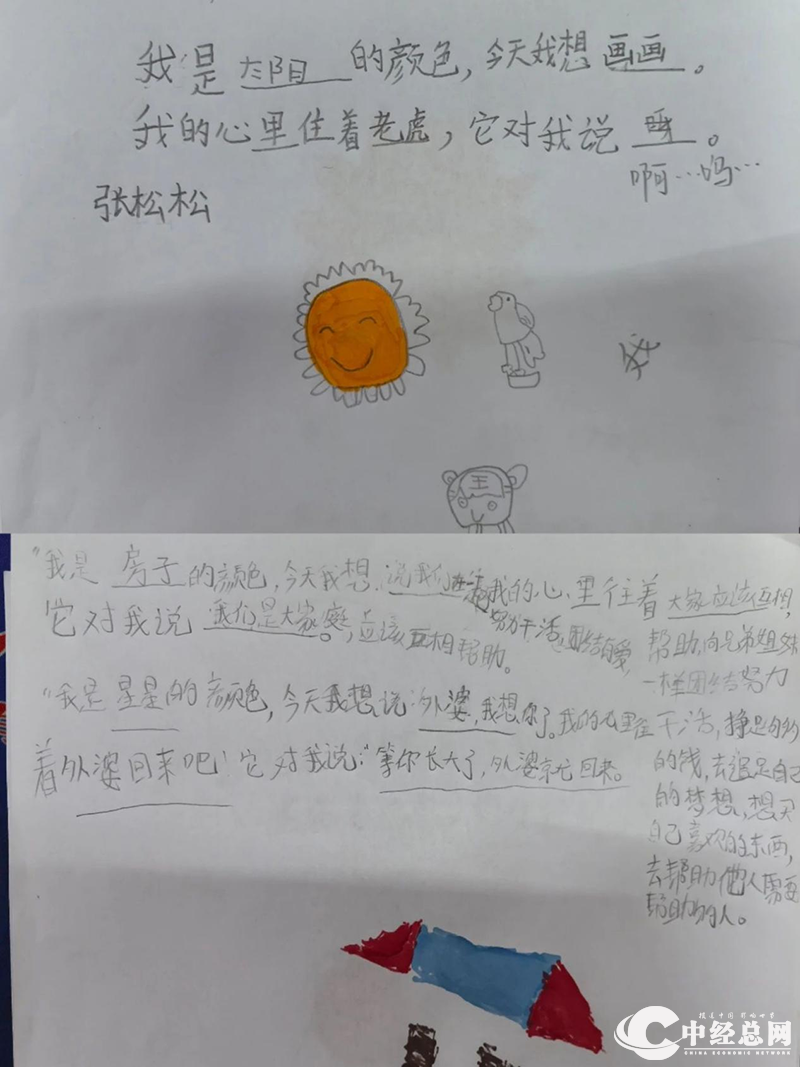 我是太阳的颜色，今天我想画画。
我的心里住着老虎，它对我说
啊…呜…
张松松
王
"我是房子的颜色，今天我想说我们
努力干活，团结友爱，
我的心里住着大家应该互相
帮助，向兄弟姐妹
一样团结努力
干活，挣足够的
的钱，去追足自己
的梦想，想买
自己喜欢的东西，
去帮助他人需要
帮助的人。
它对我说我们是大家庭，应该互相帮助。
"我是星星的颜色，今天我想说外婆，我想你了。我的心里住
着外婆回来吧！它对我说："等你长大了，外婆就回来。
搜美中国 影响世界
中经总网
CHINA ECONOMIC NETWORK